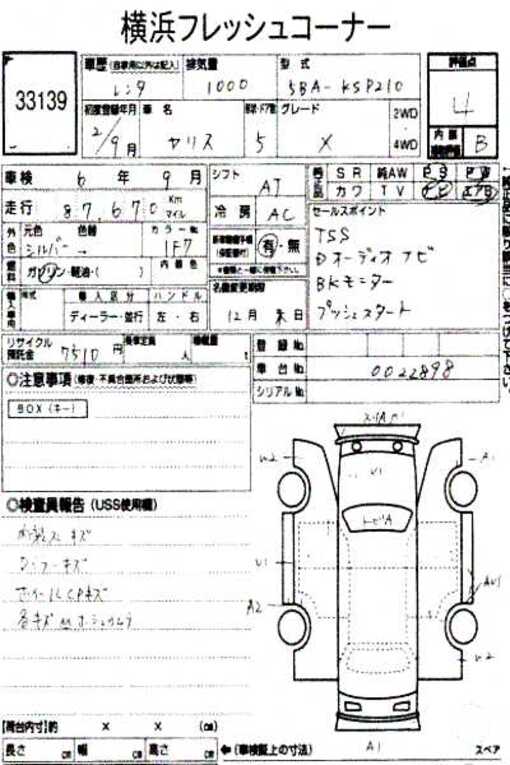 横浜フレッシュコーナー
33139
車歴 (自家用以外は記入) 排気量 型式 評価点
レンタ 1000 5BA-KSP210 4
初度登録年月 車名 グレード 2WD
2/9月 ヤリス 5 X 4WD
内装 B
車検 6年 9月 シフト AT
SR 純AW PS PW
カワ TV ナビ エアB
走行 87,670 Km マイル
冷房 AC
セールスポイント
外色 元色 色替 カラーNo.
シルバー → 1F7
有・無
TSS
Dオーディオナビ
BKモニター
プッシュスタート
燃料 ガソリン・軽油・( ) 内装色
名義変更期限
12月 末日
輸入車用 年式 輸入区分 ハンドル
ディーラー・並行 左・右
リサイクル預託金 7510円 乗車定員 人 積載量 t
登録No.
車台No. 0022898
シリアルNo.
◎注意事項 (修復・不具合箇所および状態等)
BOX (キー)
◎検査員報告 (USS使用欄)
内装スレキズ
ホイールCPキズ
スリA
U2 U1 A1
トビA
U1 A2 AU1 U2
A1
【荷台内寸】約 × × (cm)
長さ cm 幅 cm 高さ cm ←(車検証上の寸法) スペア